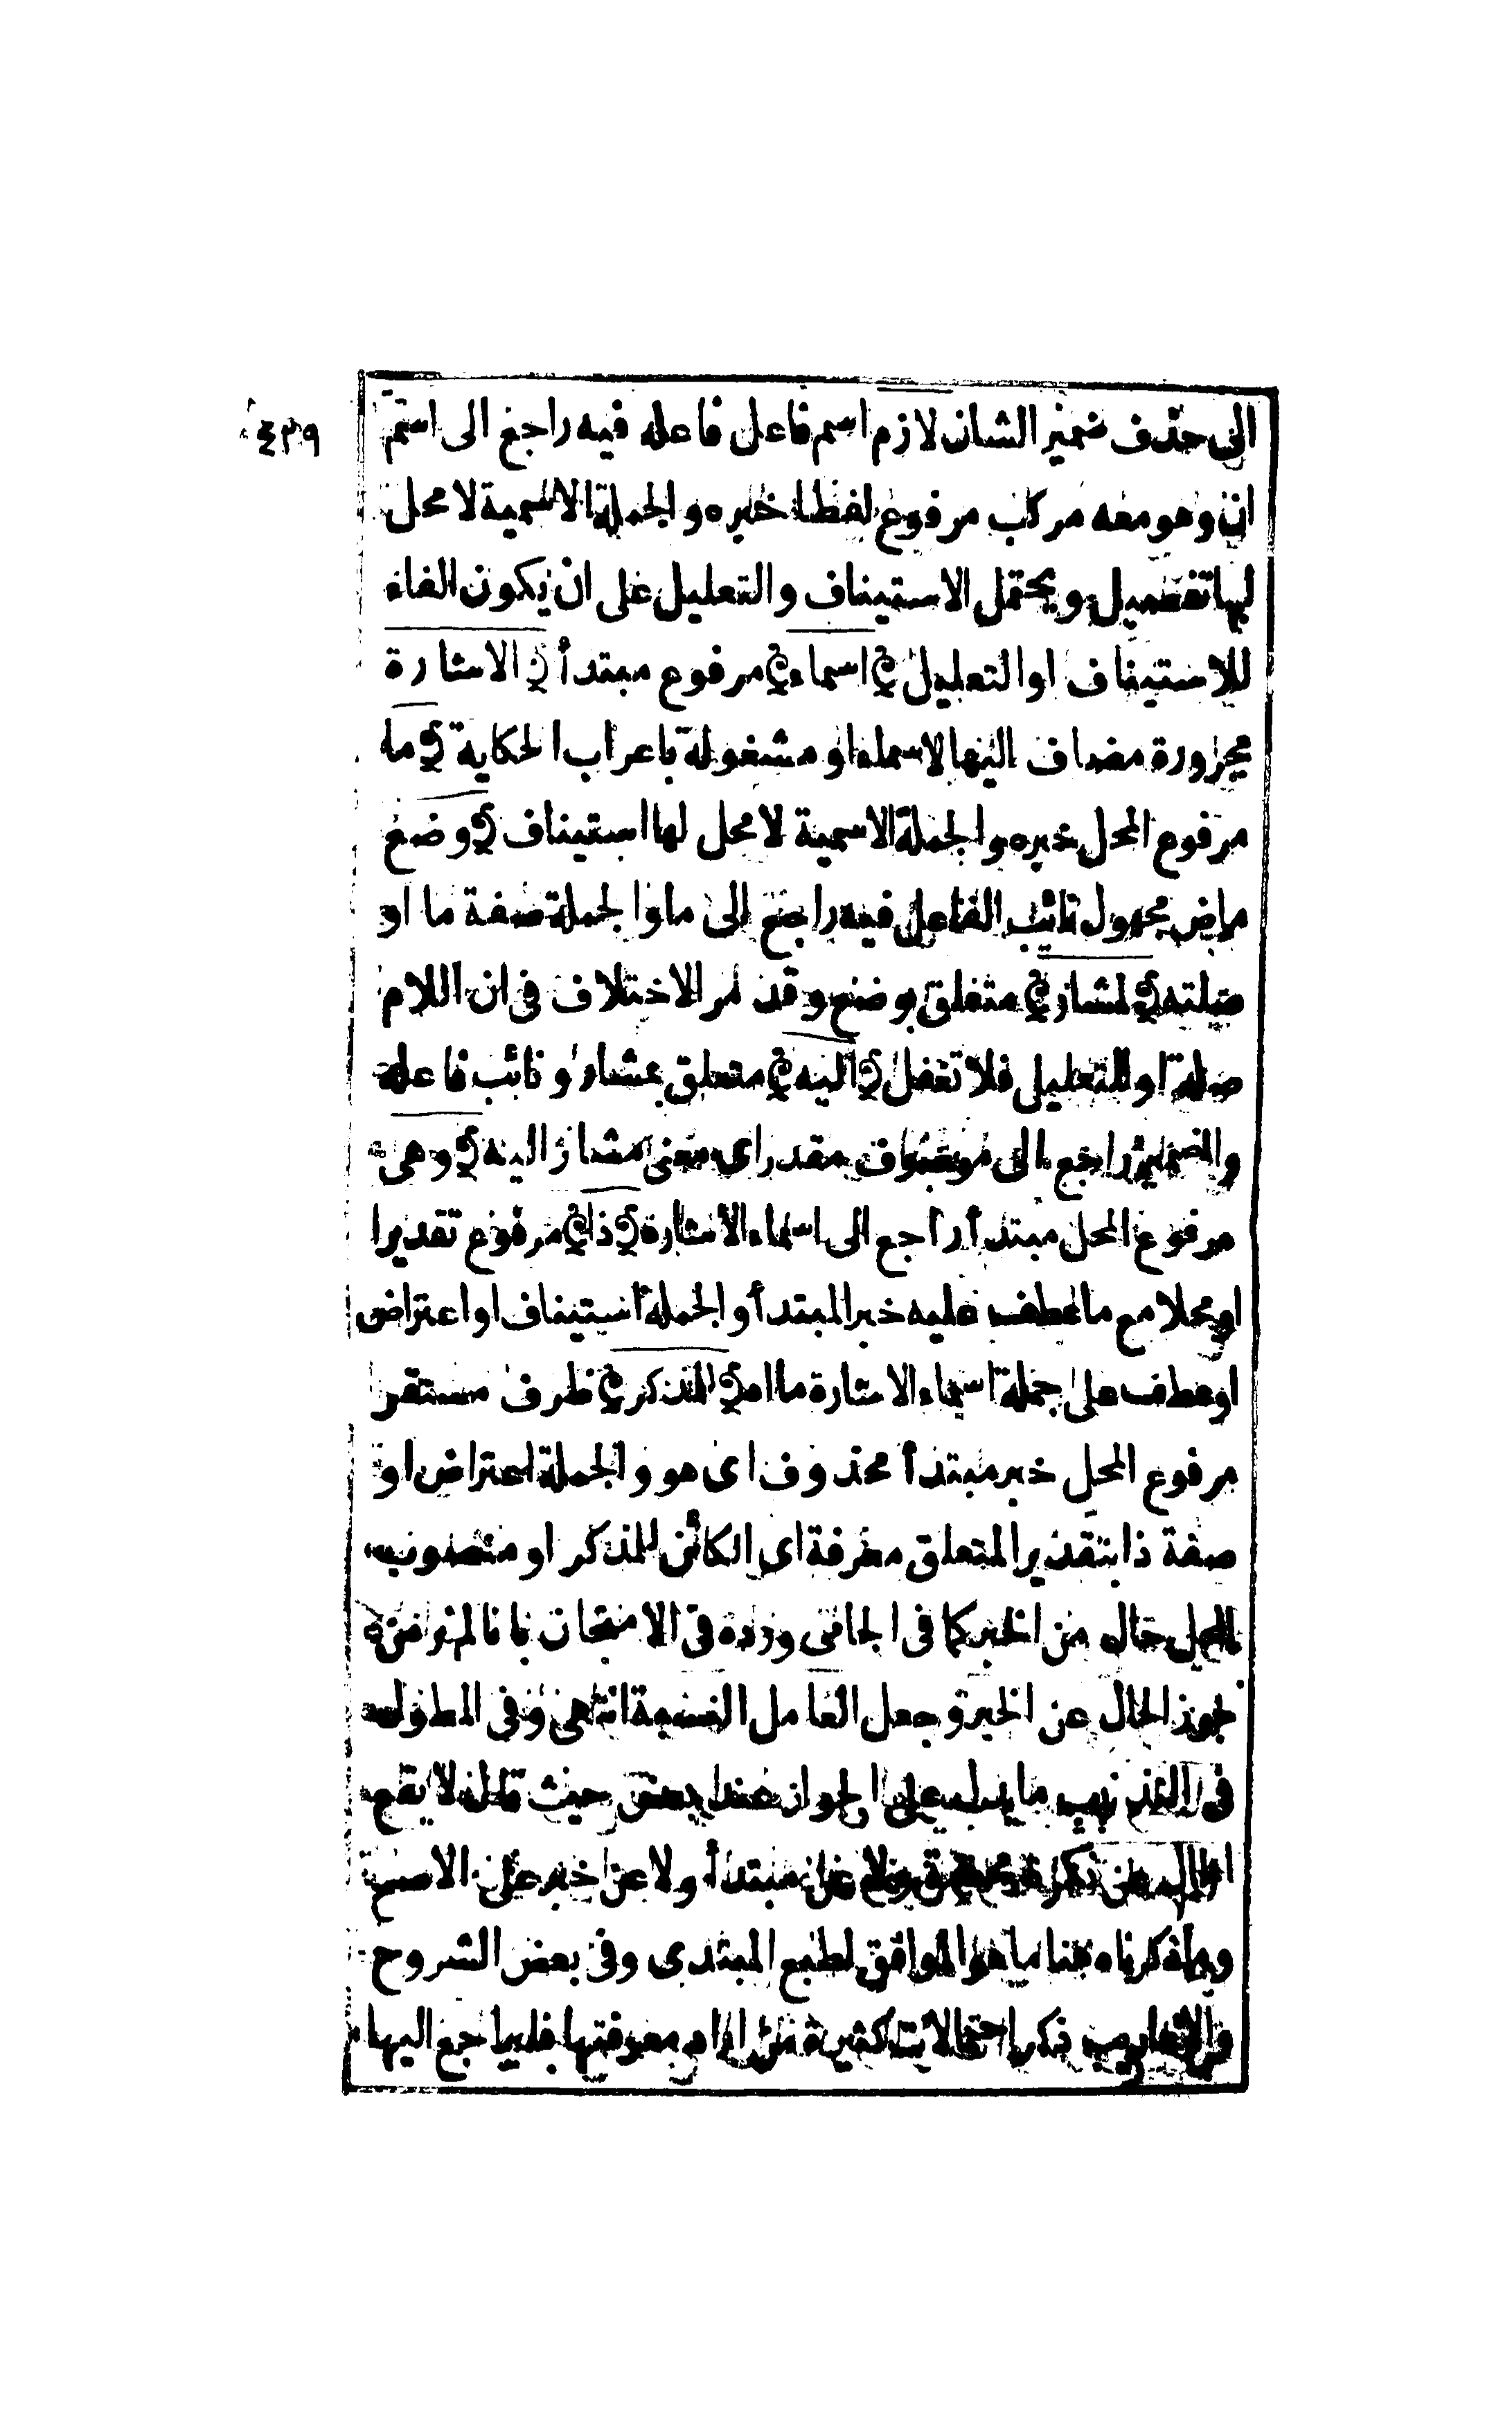 ٤٣٩
الى حذف ضمير الشان لازم اسم فاعل فاعله فيه راجع الى اسم
ان وهو معه مركب مرفوع لفظا خبره والجملة الاسمية لا محل
لها تفصيل ويحتمل الاستيناف والتعليل على ان يكون الفاء
للاستيناف او التعليل ﴿ اسماء ﴾ مرفوع مبتدأ ﴿ الاشارة
مجرورة مضاف اليها لاسماء او مشغولة باعراب الحكاية ﴿ ما
مرفوع المحل خبره والجملة الاسمية لا محل لها استيناف ﴿ وضع
ماض مجهول نائب الفاعل فيه راجع الى ما والجملة صفة ما او
صلته ﴿ لمشار ﴾ متعلق بوضع وقد مر الاختلاف فى ان اللام
صلة او للتعليل فلا تغفل ﴿ اليه ﴾ متعلق بمشار و نائب فاعله
والضمير راجع الى موصوف مقدر اى معنى مشار اليه ﴿ وهى
مرفوع المحل مبتدأ راجع الى اسماء الاشارة ﴿ ذا ﴾ مرفوع تقديرا
او محلا مع ما عطف عليه خبر المبتدأ والجملة استيناف او اعتراض
او عطف على جملة اسماء الاشارة ما اه ﴿ للمذكر ﴾ ظرف مستقر
مرفوع المحل خبر مبتدأ محذوف اى هو والجملة اعتراض او
صفة ذا بتقدير المتعلق معرفة اى الكائن للمذكر او منصوب
المحل حال من الخبر كما فى الجامى ورده فى الامتحان بانا لم نر من
جوز الحال عن الخبر وجعل العامل النسبة انتهى وفى المطول
فى ما يدل على الجواز عند بعض حيث قال لا يقع
الحال عن نكرة ولا عن مبتدأ ولا عن خبر على الاصح
وما ذكرناه هنا ما هو الموافق لطبع المبتدى وفى بعض الشروح
ذكر احتمالات كثيرة من اراد معرفتها فليراجع اليها